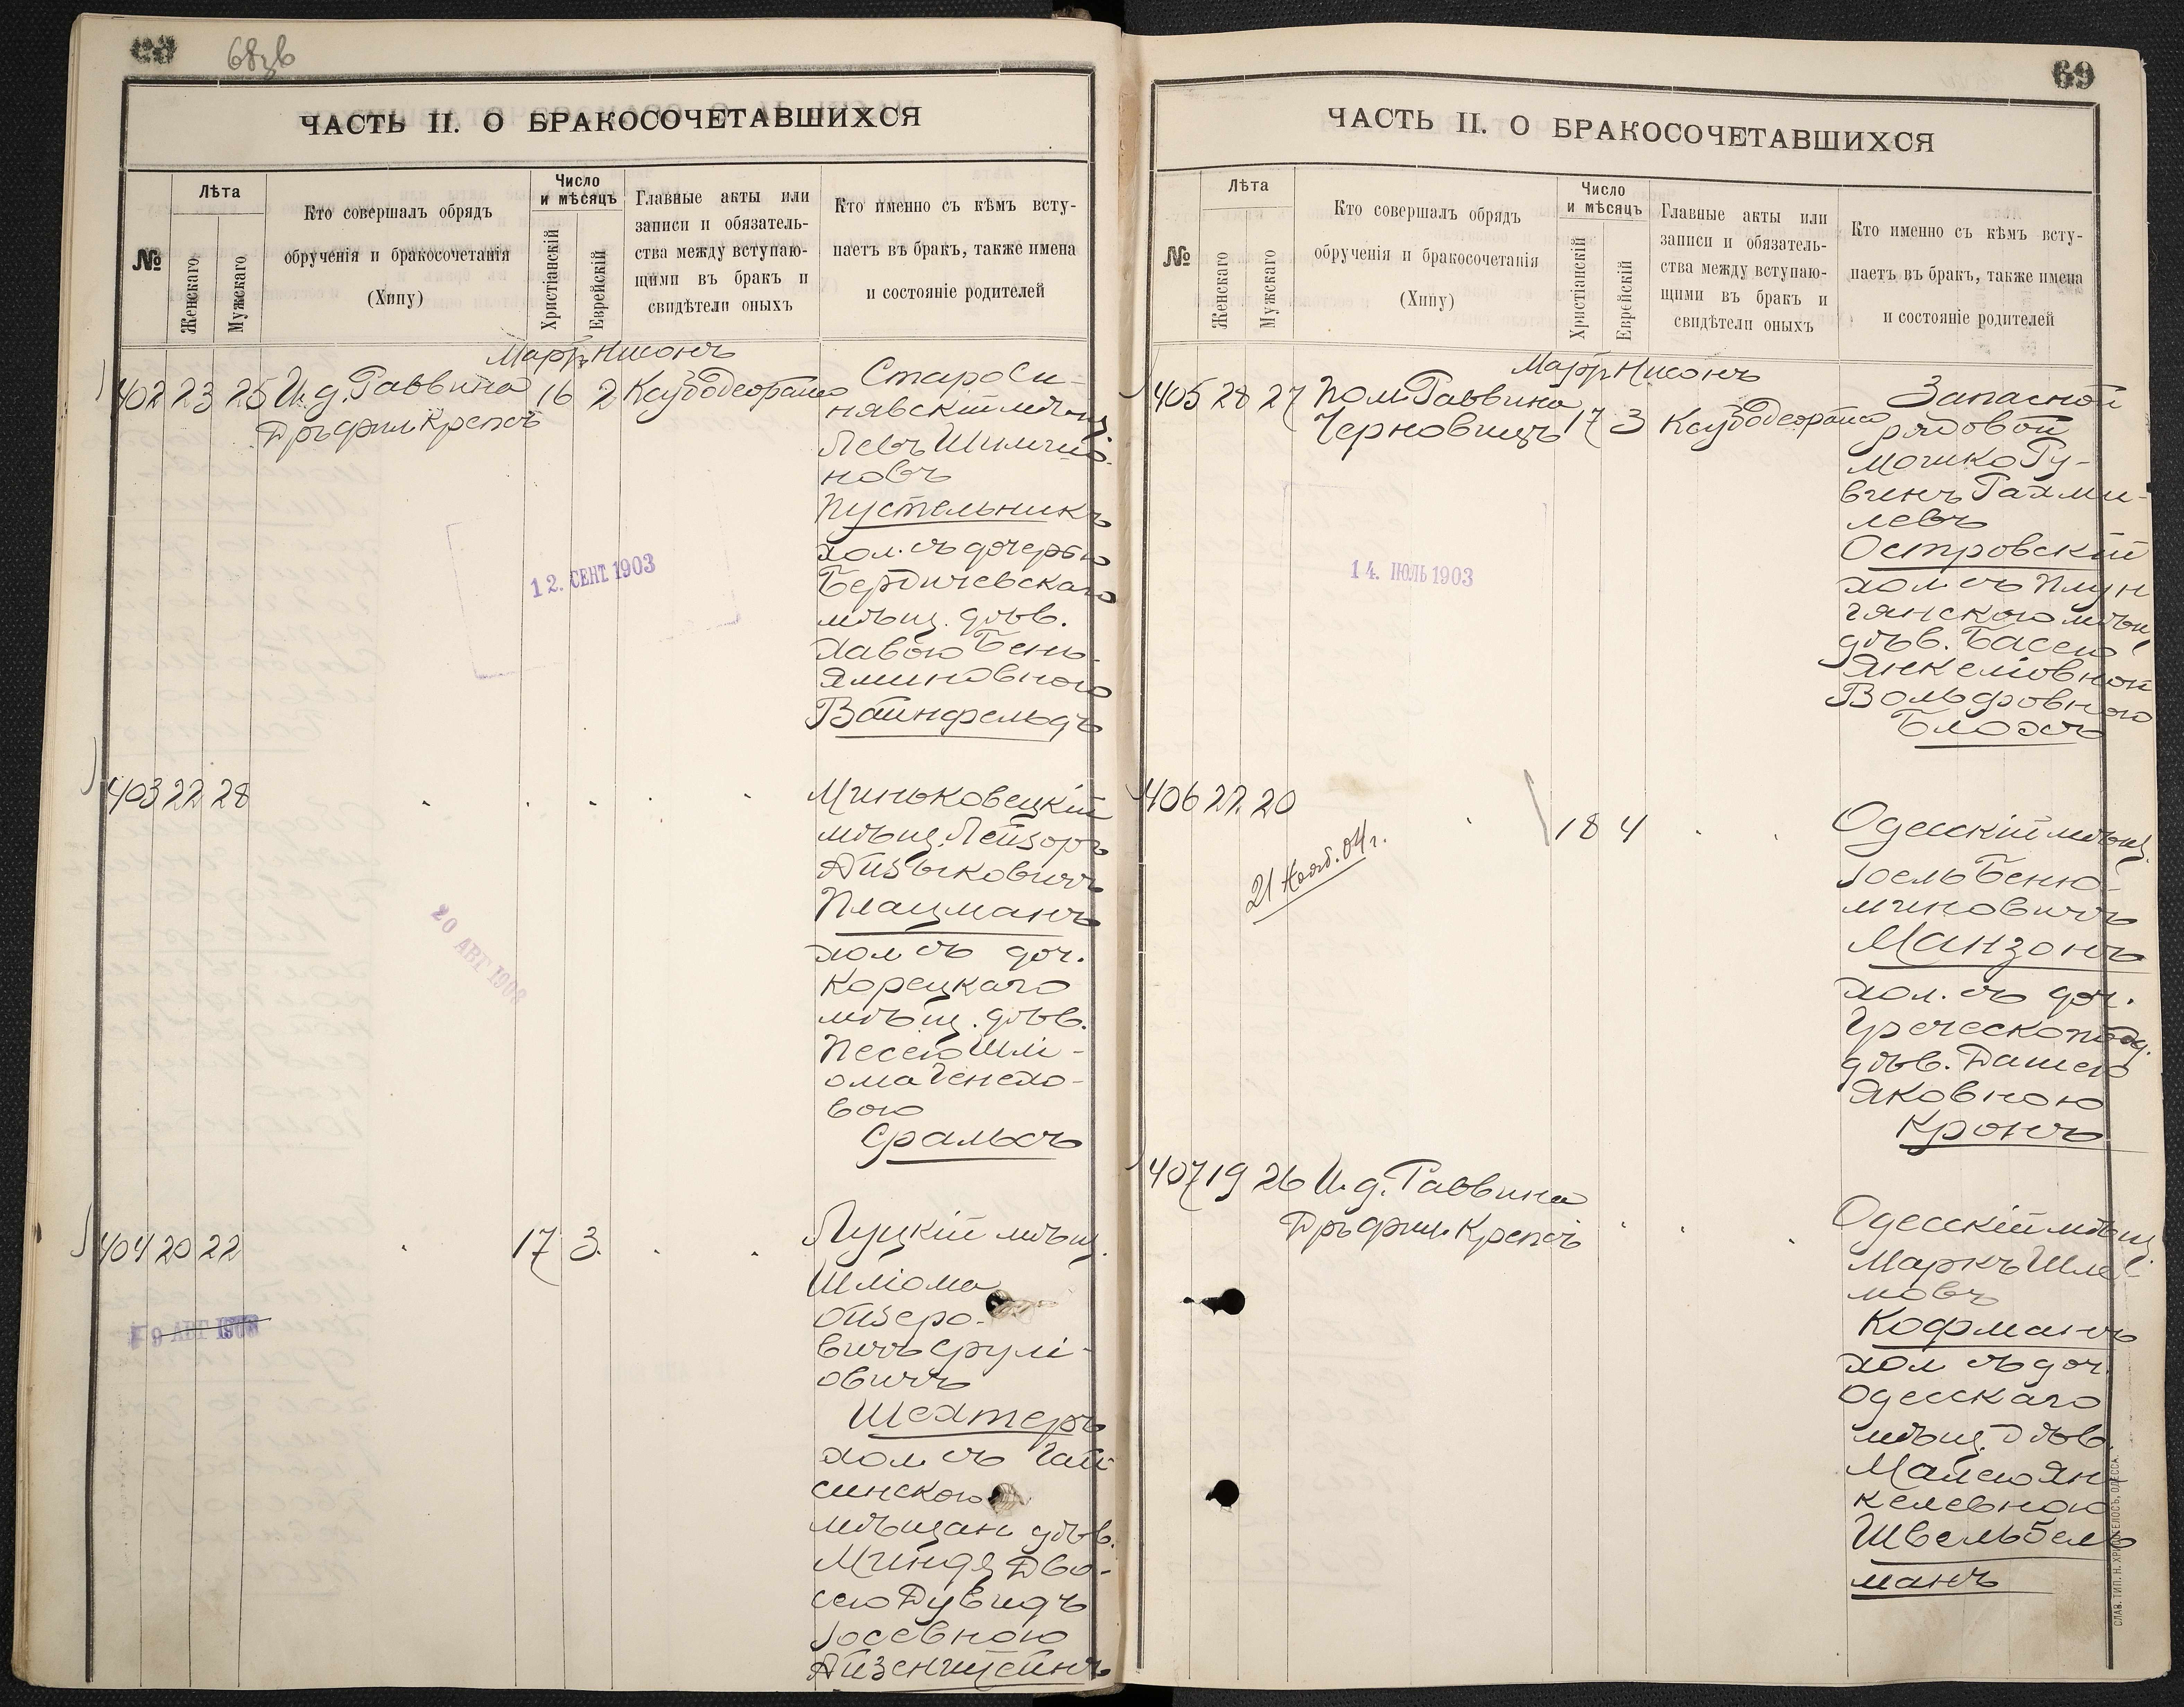 68зв
ЧАСТЬ II. О БРАКОСОЧЕТАВШИХСЯ
№
Лѣта
Женскаго
Мужскаго
Кто совершалъ обрядъ
обрученія и бракосочетанія
(Хипу)
Число
и мѣсяцъ
Христіанскій
Еврейскій
Главные акты или
записи и обязатель-
ства между вступаю-
щими въ бракъ и
свидѣтели оныхъ
Кто именно съ кѣмъ всту-
паетъ въ бракъ, также имена
и состояніе родителей
Мартъ Нисонъ
402 23 25 И. д. Раввина 16 2
Дръ фил. Крепсъ
СтароСи-
нявскій мѣщ.
Левъ Шимшо-
новъ
Пустельникъ
хол. съ дочерью
Бердичевскаго
мѣщ. дѣв.
Хавою Бень-
яминовною
Вайнфельдъ
12. СЕНТ 1903
403 22 28
Миньковецкій
мѣщ. Лейзоръ
Айзыковичъ
Плацманъ
хол съ доч.
Корецкаго
мѣщ. дѣв.
Песею Шлі-
ома Генехо-
вою
Сральсъ
20 АВГ 1903
404 20 22 17 3
Луцкій мѣщ.
Шліома
Ойзеро-
вичъ Срулі-
овичъ
Шехтеръ
хол. съ Гай
синскою
мѣщан дѣв.
Миндя Дво-
сею Дувидъ
Іосевною
Айзенштейнъ
69
ЧАСТЬ II. О БРАКОСОЧЕТАВШИХСЯ
№
Лѣта
Женскаго
Мужскаго
Кто совершалъ обрядъ
обрученія и бракосочетанія
(Хипу)
Число
и мѣсяцъ
Христіанскій
Еврейскій
Главные акты или
записи и обязатель-
ства между вступаю-
щими въ бракъ и
свидѣтели оныхъ
Кто именно съ кѣмъ всту-
паетъ въ бракъ, также имена
и состояніе родителей
Мартъ Нисонъ
405 28 27 Пом. Раввина
Черновицъ 17 3
Запасной
рядовой
Мошко Ру-
винъ Рахми-
левъ
Островскій
хол съ Плун
гянскою мѣщ
дѣв. Басею
Янкеліовной
Вольфовною
Блохъ
14. ІЮЛЬ 1903
406 22 20 18 4
21 Нояб. 04 г.
Одесскій мѣщ.
Іоель Беню-
миновичъ
Манзонъ
хол. съ доч.
Греческопод.
дѣв. Дашею
Яковною
Кронъ
407 19 26 И. д. Раввина
Дръ фил. Крепсъ
Одесскій мѣщ
Маркъ Шле-
мовъ
Кофманъ
хол съ доч.
Одесскаго
мѣщ. Дѣв.
Малею Ян
келевною
Швельбель
манъ
СЛАВ. ТИП. Н. ХРИСОГЕЛОСЪ, ОДЕССА.